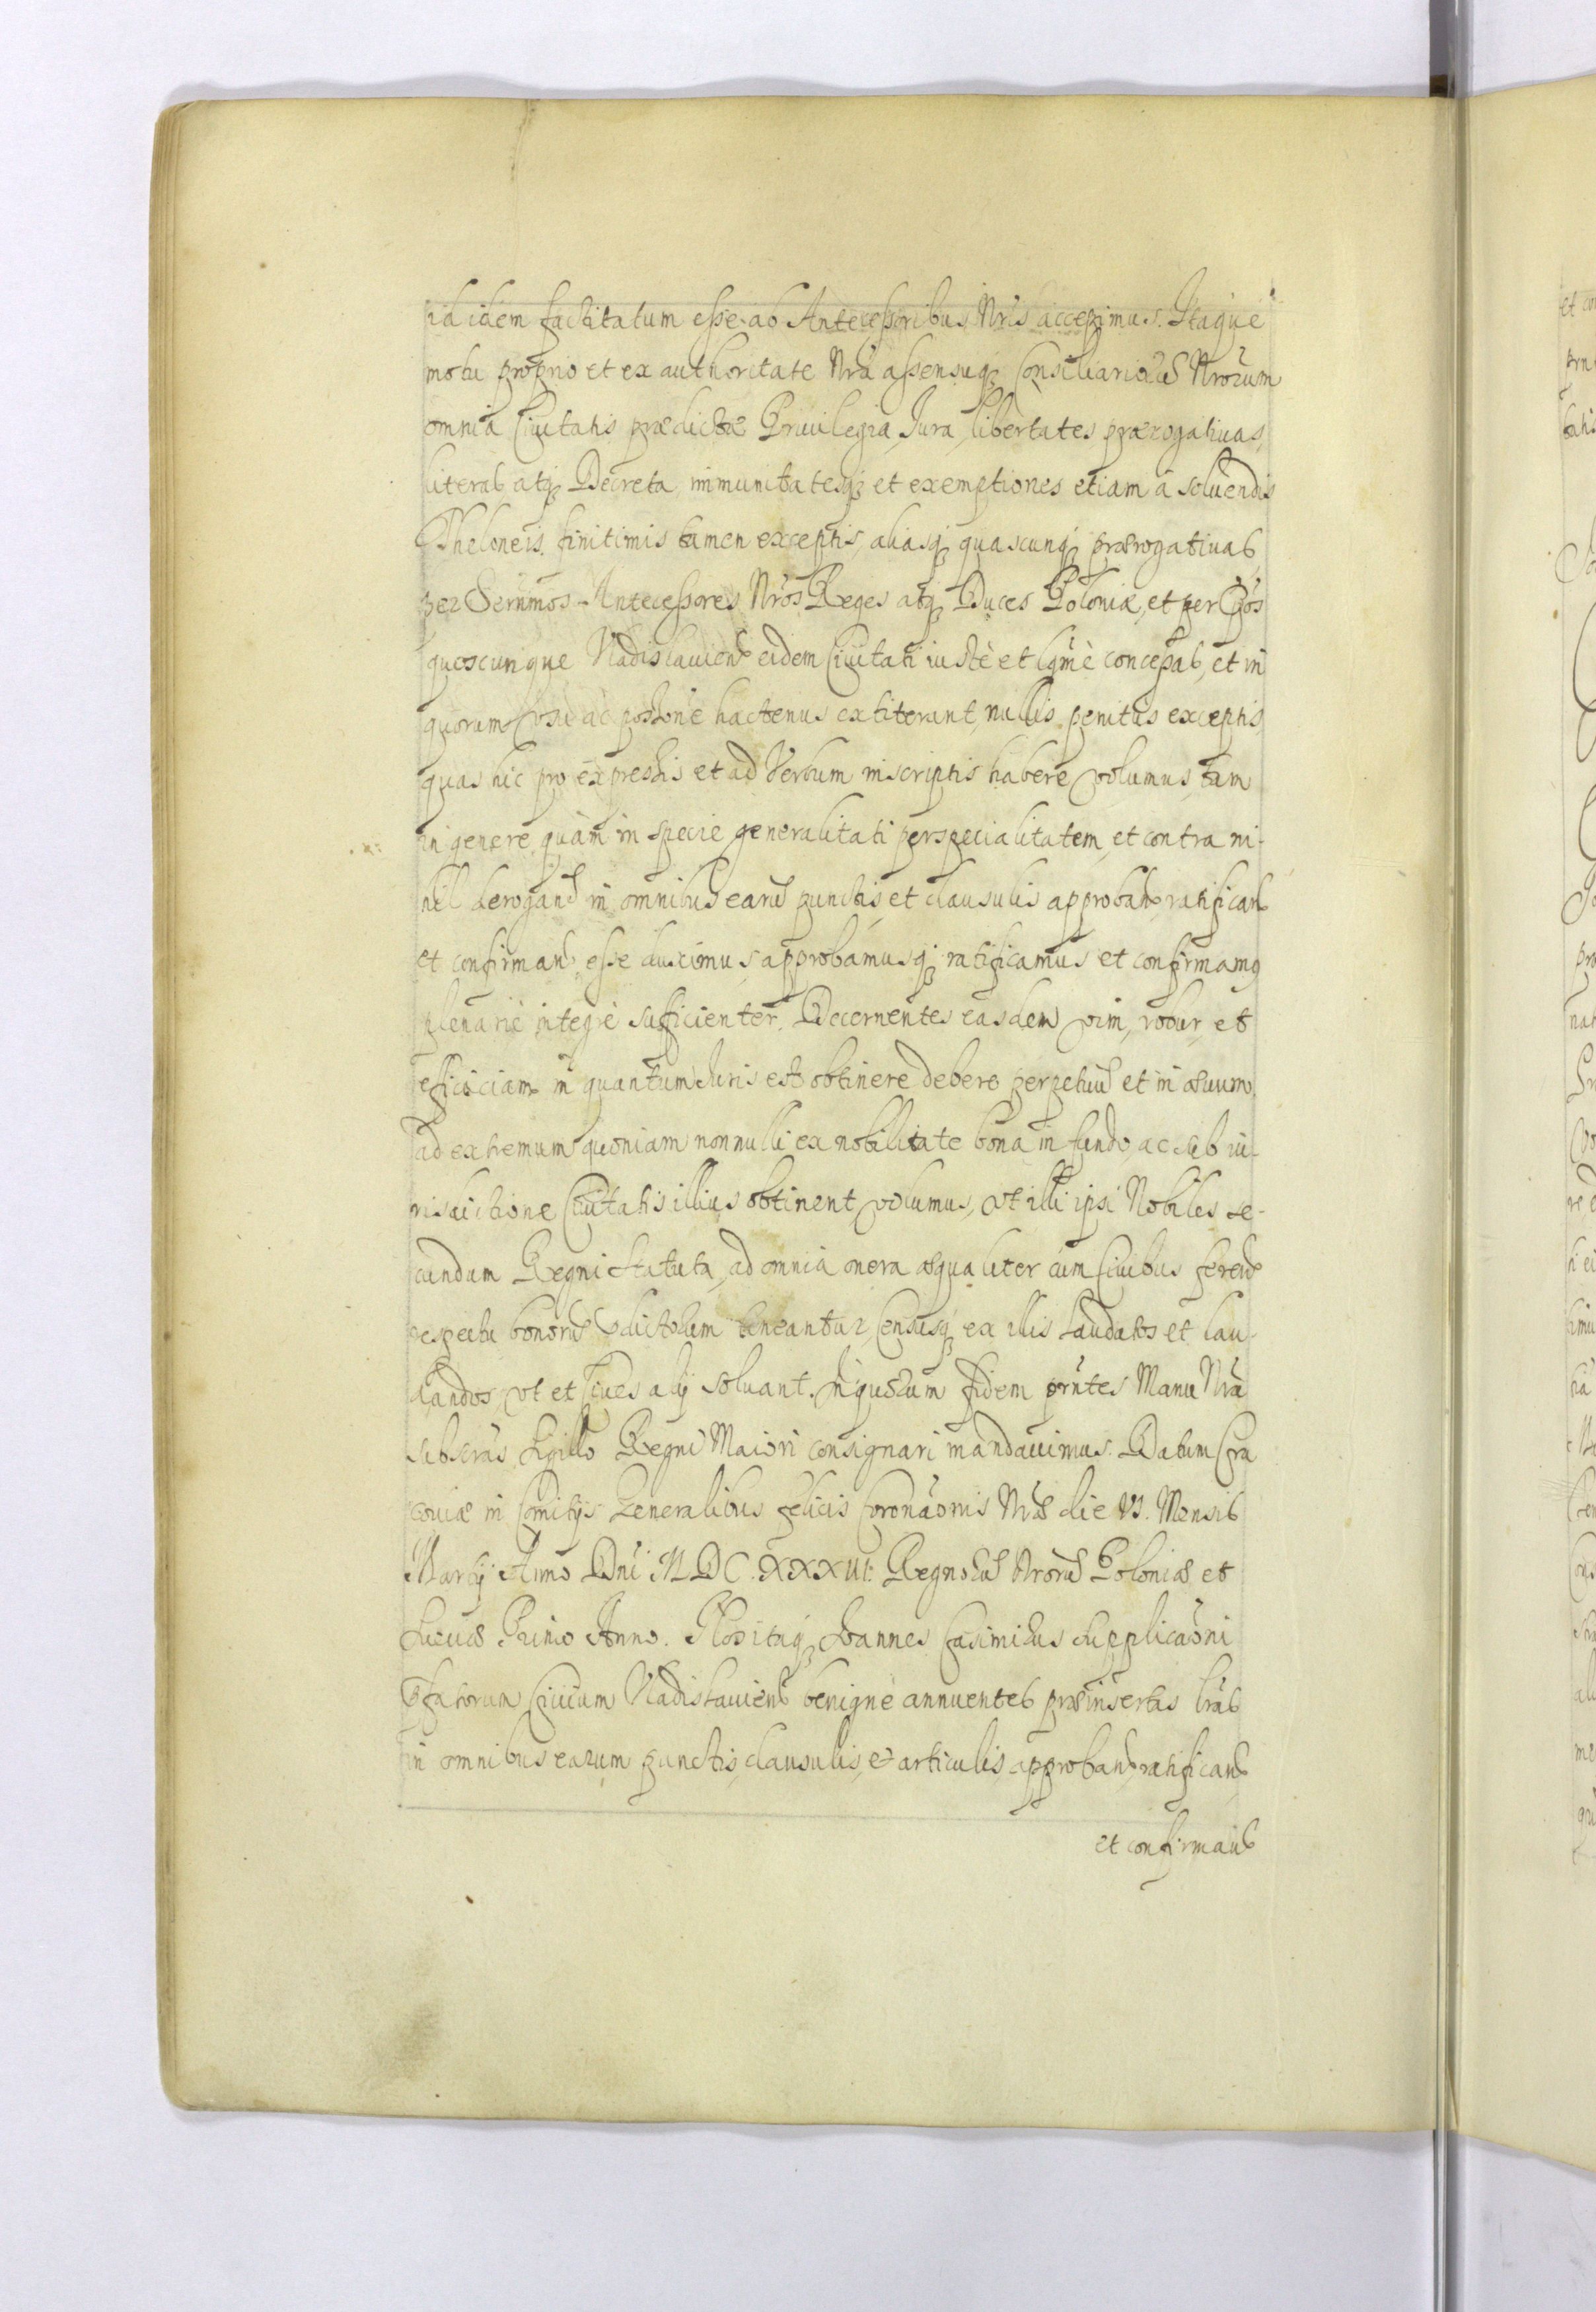 id idem factitatum esse ab Antecessoribus Nris accepimus. Itaque
motu proprio et ex authoritate Nra assensuq; Consiliariorũ Nrorum
omnia Ciuitatis prædictæ Priuilegia, Jura, libertates, prærogatiuas,
literas, atq; Decreta, immunitatesq; et exemptiones etiam à soluendis
Theloneis, finitimis tamen exceptis, aliasq; quascunq; prærogatiuas,
per Sernmos Antecessores Nros Reges atq; Duces Poloniæ, et per Epos
quoscunque Vladislauien̄ eidem Ciuitati iustè et ltimè concessas, et in
quorum vsu ac possone hactenus extiterunt, nullis penitus exceptis,
quas hic pro expressis et ad Verbum inscriptis habere volumus, tam
in genere, quàm in specie generalitati per specialitatem, et contra ni-
hil derogand in omnibus earũ punctis, et clausulis approband ratificand
et confirmand esse duximus, approbamusq; ratificamus et confirmamq
plenariè integrè sufficienter. Decernentes easdem vim, robur, et
efficaciam in quantum Juris est obtinere debere perpetuũ et in æuum.
ad extremum quoniam nonnulli ex nobilitate bona in fundo, ac sub iu-
risdictione Ciuitatis illius obtinent, volumus, vt illi ipsi Nobiles se-
cundum Regni statuta, ad omnia onera æqualiter cum Ciuibus ferend
respectu bonorũ pdictorum teneantur, Censusq; ex illis laudatos et lau-
dandos, vt et Ciues alij soluant. In quorum fidem prntes Manu Nra
subscras, Sigillo Regni Maiori consignari mandauimus. Datum Cra
couiæ in Comitijs Generalibus felicis Coronaonis Nræ die VI. Mensis
Martij Anno Dni MDC.XXXIII: Regnorũ Nrorũ Poloniæ et
Sueciæ Primo Anno. Nos itaq; Ioannes Casimirus supplicaoni
pfatorum Ciuium Vladislauien̄ benignè annuentes præinsertas lras
in omnibus earum punctis, clausulis, et articulis, approband, ratificand,
et confirmand